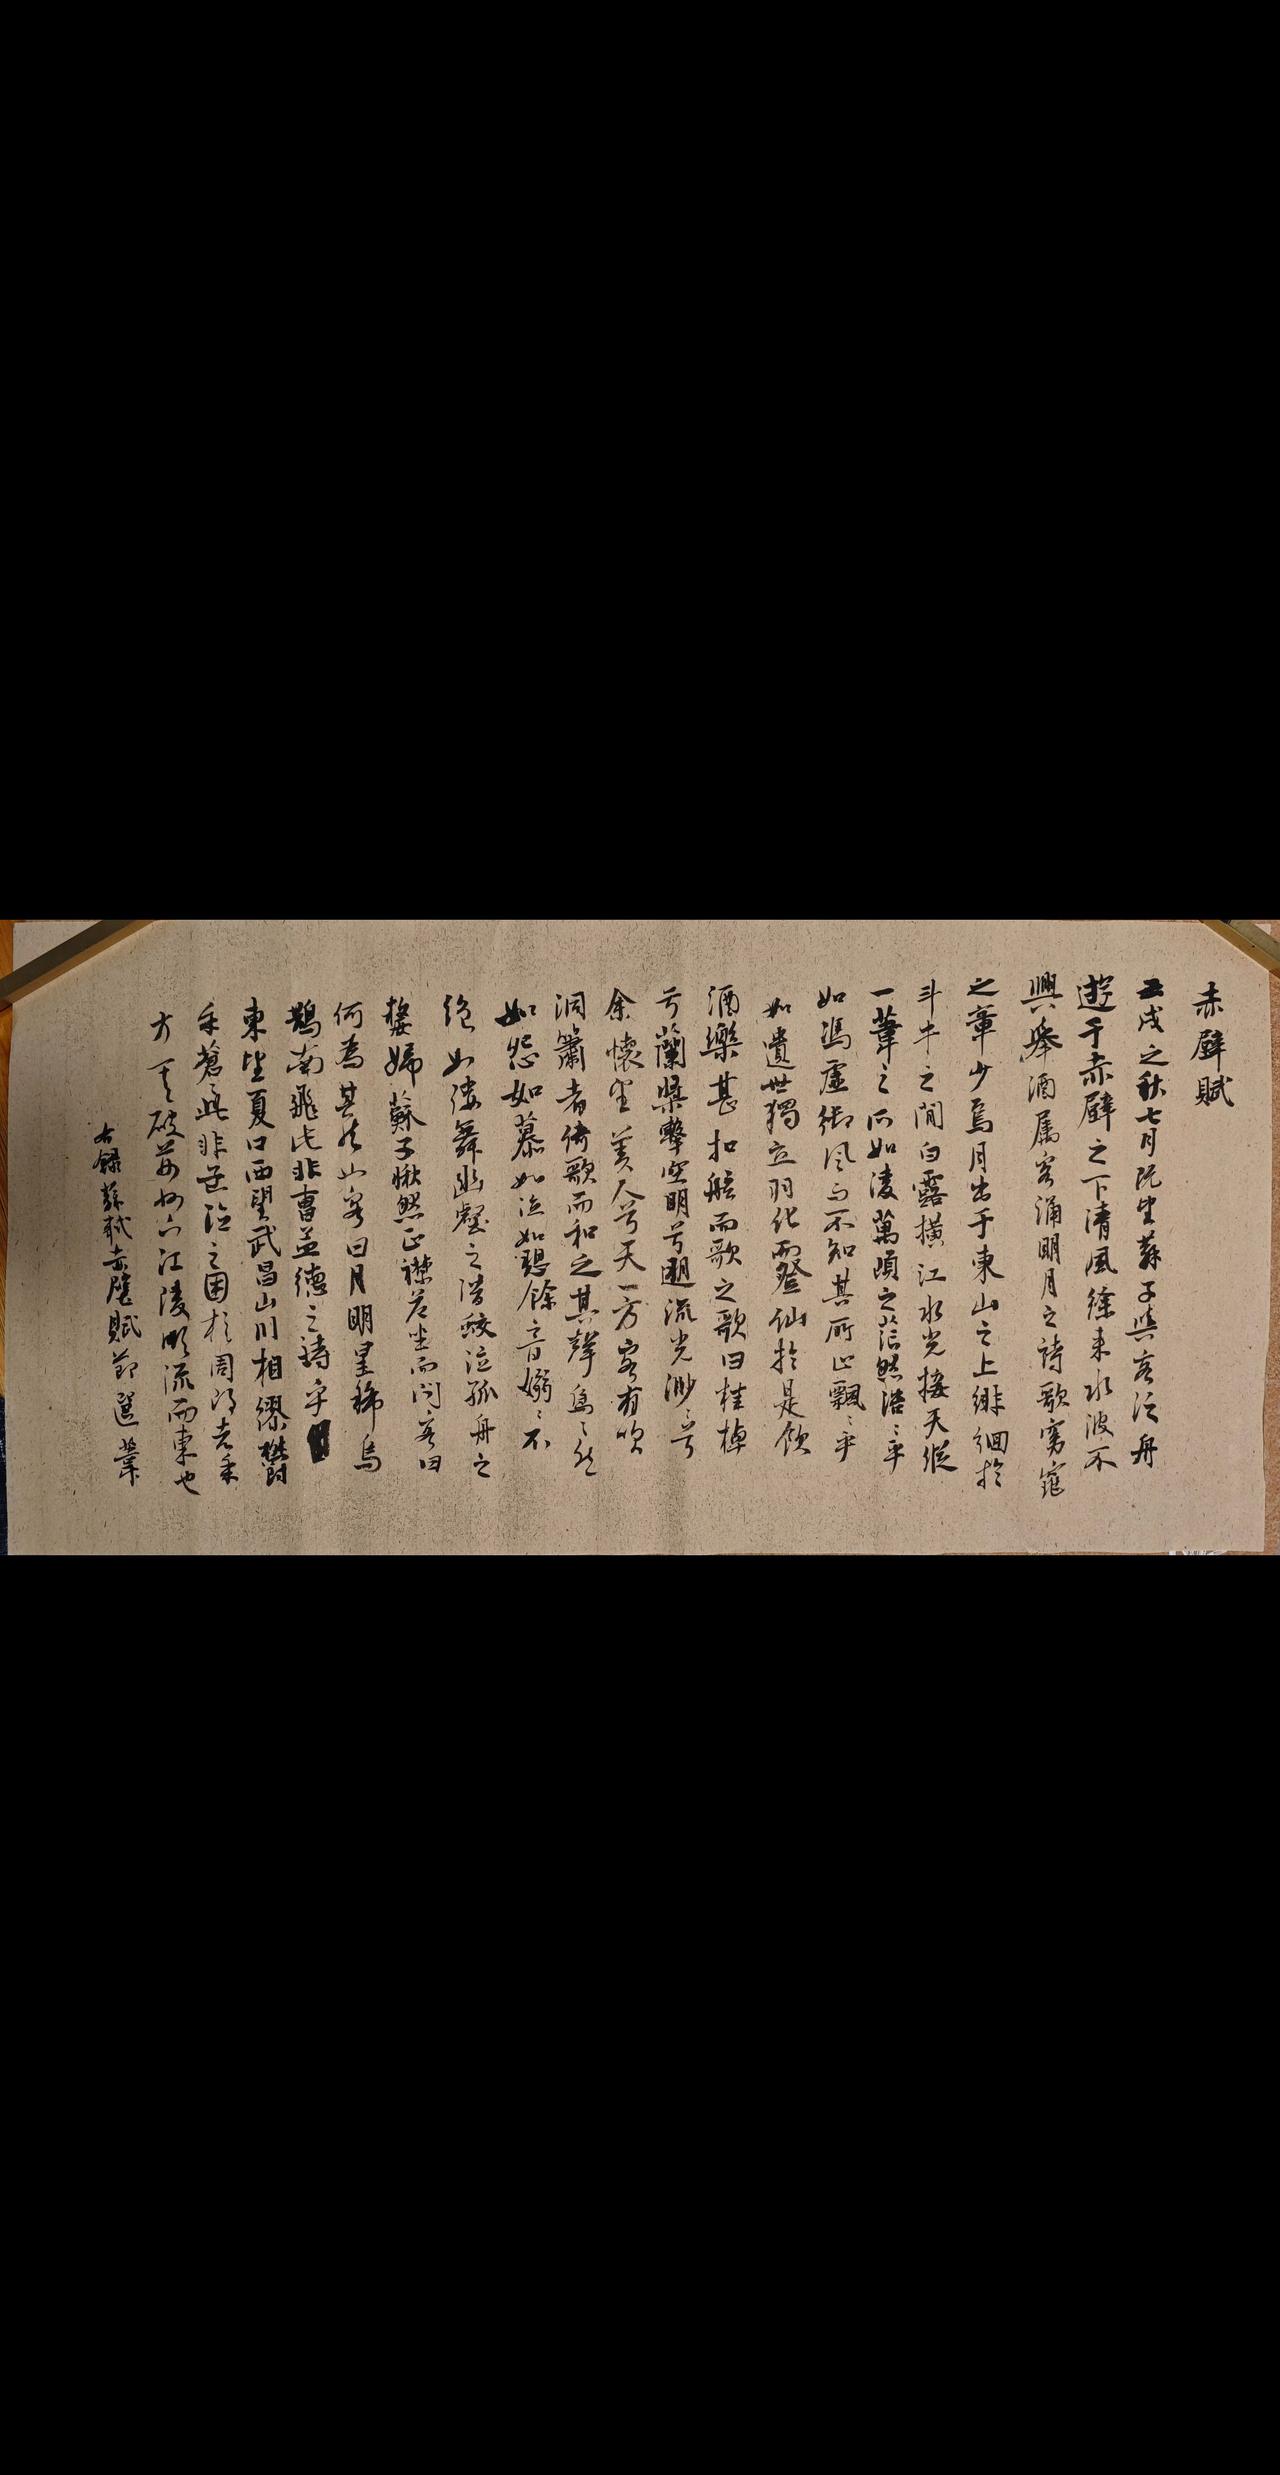 赤壁賦
壬戌之秋七月既望蘇子與客泛舟
遊于赤壁之下清風徐來水波不
興舉酒属客誦明月之詩歌窈窕
之章少焉月出于東山之上徘徊於
斗牛之間白露橫江水光接天縱
一葦之所如淩萬頃之茫然浩〻乎
如馮虛御風而不知其所止飄〻乎
如遺世獨立羽化而登仙於是飲
酒樂甚扣舷而歌之歌曰桂棹
兮蘭槳擊空明兮遡流光渺〻兮
余懷望美人兮天一方客有吹
洞簫者倚歌而和之其聲嗚〻然
如怨如慕如泣如愬餘音嫋〻不
絕如縷舞幽壑之潛蛟泣孤舟之
嫠婦蘇子愀然正襟危坐而問客曰
何為其然也客曰月明星稀烏
鵲南飛此非曹孟德之詩乎
東望夏口西望武昌山川相繆鬱
乎蒼〻此非孟德之困於周郎者乎
方其破荊州下江陵順流而東也
右錄蘇軾赤壁賦節選